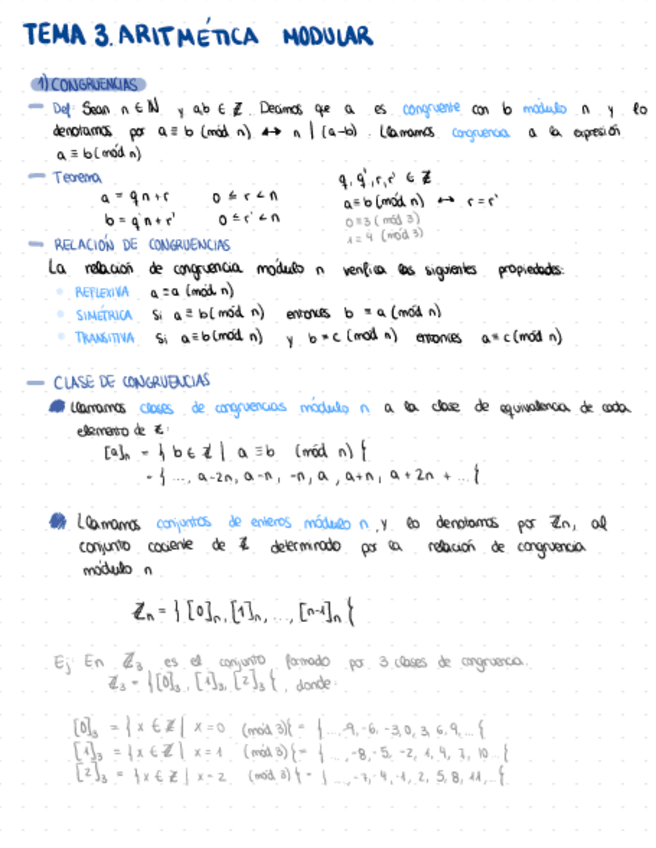 TEMA 3. ARITMÉTICA MODULAR
1) CONGRUENCIAS
— Def: Sean n ∈ ℕ y a,b ∈ ℤ. Decimos que a es congruente con b módulo n y lo
denotamos por a ≡ b (mód n) ↔ n | (a-b). Llamamos congruencia a la expresión
a ≡ b (mód n)
— Teorema q, q', r, r' ∈ ℤ
a = qn+r 0 ≤ r < n a ≡ b (mód n) ↔ r = r'
b = q'n+r' 0 ≤ r' < n 0 ≡ 3 (mód 3)
1 = 4 (mód 3)
— RELACIÓN DE CONGRUENCIAS
La relación de congruencia módulo n verifica las siguientes propiedades:
• REFLEXIVA a = a (mód n)
• SIMÉTRICA Si a ≡ b (mód n) entonces b ≡ a (mód n)
• TRANSITIVA Si a ≡ b (mód n) y b ≡ c (mód n) entonces a ≡ c (mód n)
— CLASE DE CONGRUENCIAS
Llamamos clases de congruencias módulo n a la clase de equivalencia de cada
elemento de ℤ:
[a]n = { b ∈ ℤ | a ≡ b (mód n) }
= { ..., a-2n, a-n, -n, a, a+n, a+2n + ... }
Llamamos conjuntos de enteros módulo n y lo denotamos por ℤn, al
conjunto cociente de ℤ determinado por la relación de congruencia
módulo n
ℤn = { [0]n, [1]n, ..., [n-1]n }
Ej En ℤ3 es el conjunto formado por 3 clases de congruencia.
ℤ3 = { [0]3, [1]3, [2]3 }, donde:
[0]3 = { x ∈ ℤ | x = 0 (mód 3) } = { ..., -9, -6, -3, 0, 3, 6, 9, ... }
[1]3 = { x ∈ ℤ | x = 1 (mód 3) } = { ..., -8, -5, -2, 1, 4, 7, 10 ... }
[2]3 = { x ∈ ℤ | x = 2 (mód 3) } = { ..., -7, -4, -1, 2, 5, 8, 11, ... }